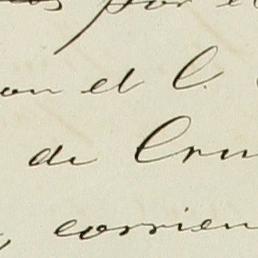 por el
on el C.
de Cru
corrien